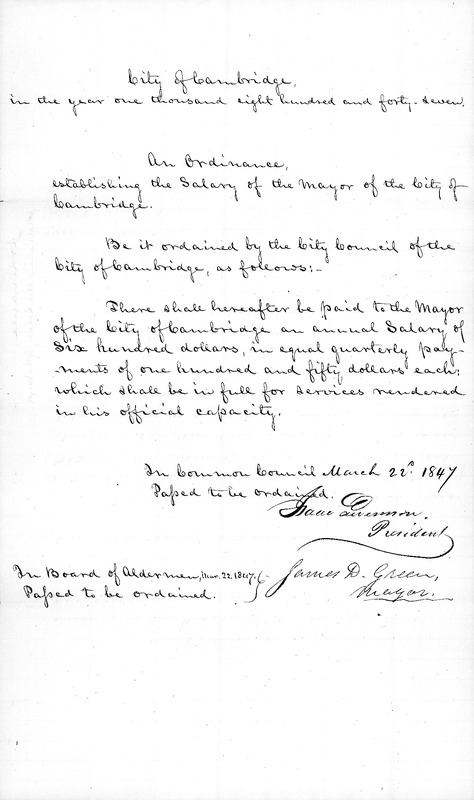 City of Cambridge,
in the year one thousand eight hundred and forty-seven.
An Ordinance,
establishing the Salary of the Mayor of the City of
Cambridge.
Be it ordained by the City Council of the
City of Cambridge, as follows:-
There shall hereafter be paid to the Mayor
of the City of Cambridge an annual Salary of
Six hundred dollars, in equal quarterly pay-
ments of one hundred and fifty dollars each;
which shall be in full for services rendered
in his official capacity.
In Common Council March 22d. 1847
Passed to be ordained.
Isaac Livermore.
President
In Board of Aldermen, Mar. 22. 1847.
Passed to be ordained.
James D. Green,
Mayor.